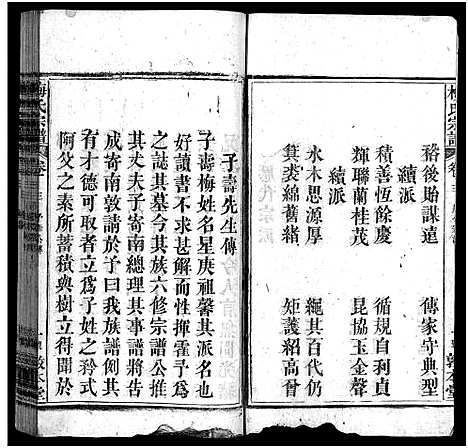 梅氏宗譜
裕後貽謀遠　傳家守典型
續派
積善恆餘慶　循規自利貞
輝聯蘭桂茂　昆協玉金聲
續派
水木思源厚　繩其百代仍
箕裘綿高閈　矩蒦紹高曾
敦本堂
梅氏宗譜
子壽先生傳
子壽梅姓名星庚祖馨其派名也
好讀書不求甚解而性揮霍予爲
之誌其墓今其族六修宗譜公推
其丈夫子寄南總理其事譜將告
成寄南敦請於予曰我族諸子姓
有才德可取者立爲子姓之矜式
阿父之素所蓄積與樹立得聞於
敦本堂